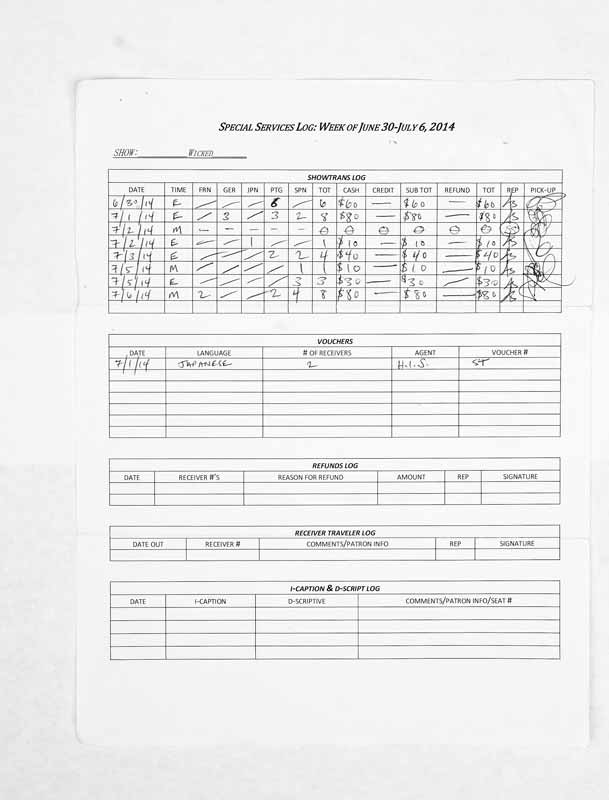 SPECIAL SERVICES LOG: WEEK OF JUNE 30-JULY 6, 2014
SHOW: WICKED
SHOWTRANS LOG
DATE TIME FRN GER JPN PTG SPN TOT CASH CREDIT SUB TOT REFUND TOT REP PICK-UP
6/30/14 E — — — 6 — 6 $60 — $60 — $60 AS
7/1/14 E — 3 — 3 2 8 $80 — $80 — $80 AS
7/2/14 M — — — — — 0 0 0 0 0 0
7/2/14 E — — 1 — — 1 $10 — $10 — $10 AS
7/3/14 E — — — 2 2 4 $40 — $40 — $40 AS
7/5/14 M — — — — 1 1 $10 — $10 — $10 AS
7/5/14 E — — — — 3 3 $30 — $30 — $30 AS
7/6/14 M 2 — — 2 4 8 $80 — $80 — $80 AS
VOUCHERS
DATE LANGUAGE # OF RECEIVERS AGENT VOUCHER #
7/1/14 JAPANESE 2 H.I.S. ST
REFUNDS LOG
DATE RECEIVER #'S REASON FOR REFUND AMOUNT REP SIGNATURE
RECEIVER TRAVELER LOG
DATE OUT RECEIVER # COMMENTS/PATRON INFO REP SIGNATURE
I-CAPTION & D-SCRIPT LOG
DATE I-CAPTION D-SCRIPTIVE COMMENTS/PATRON INFO/SEAT #